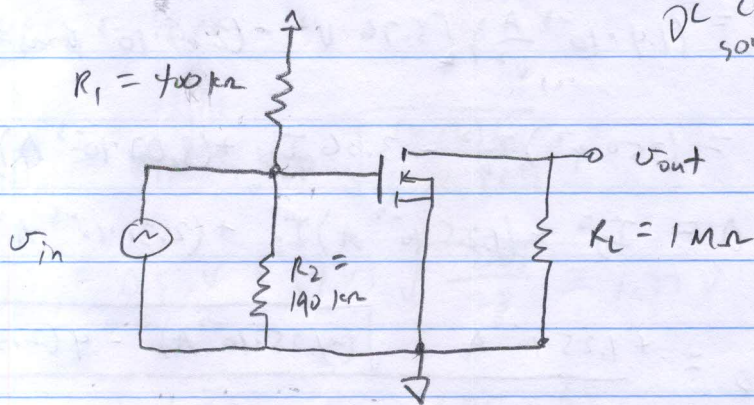 DC
R₁ = 400 kΩ
v_out
v_in
R₂ =
190 kΩ
R_L = 1 MΩ